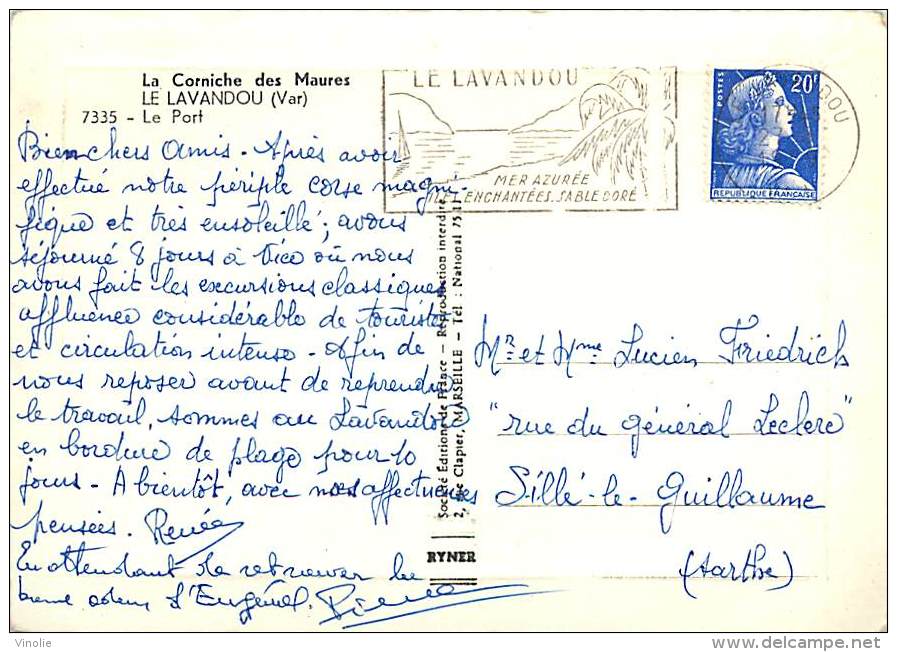 La Corniche des Maures
LE LAVANDOU (Var)
7335 - Le Port
Bien chers Amis - Après avoir
effectué notre périple corse magni-
fique et très ensoleillé ; avons
séjourné 8 jours à Vico où nous
avons fait les excursions classiques
affluence considérable de touristes
et circulation intense - Afin de
nous reposer avant de reprendre
le travail, sommes au Lavandou
en bordure de plage pour 10
jours - A bientôt, avec nos affectueuses
pensées. Renée
En attendant de retrouver la
bonne odeur d'Eugénol. Pierre
LE LAVANDOU
MER AZURÉE
ILES ENCHANTÉES. SABLE DORÉ
POSTES
20F
REPUBLIQUE FRANÇAISE
Société Editions de France - Reproduction interdite
2, Rue Clapier, MARSEILLE - Tél : National 75-11
RYNER
Mr et Mme Lucien Friedrich
"rue du général Leclerc"
Sillé-le-Guillaume
(Sarthe)
Vinolie
www.delcampe.net